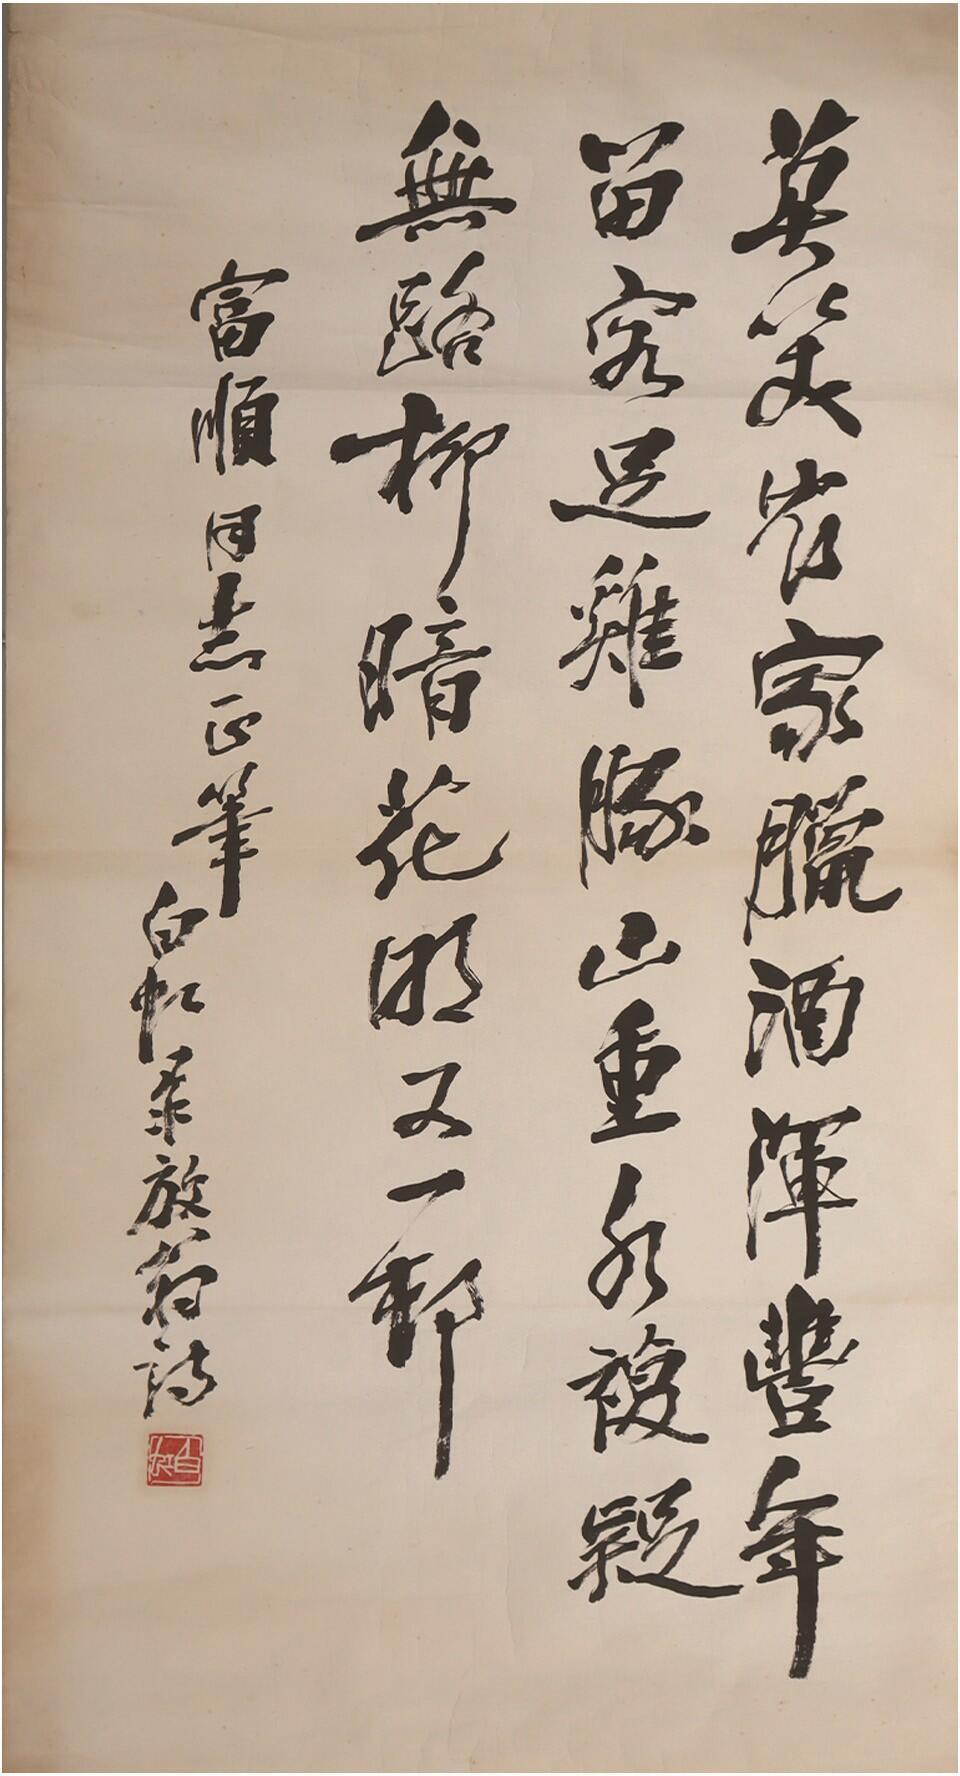 莫笑农家臘酒渾豐年
留客足雞豚山重水複疑
無路柳暗花明又一邨
富順同志正筆
白虹录放翁詩
白虹